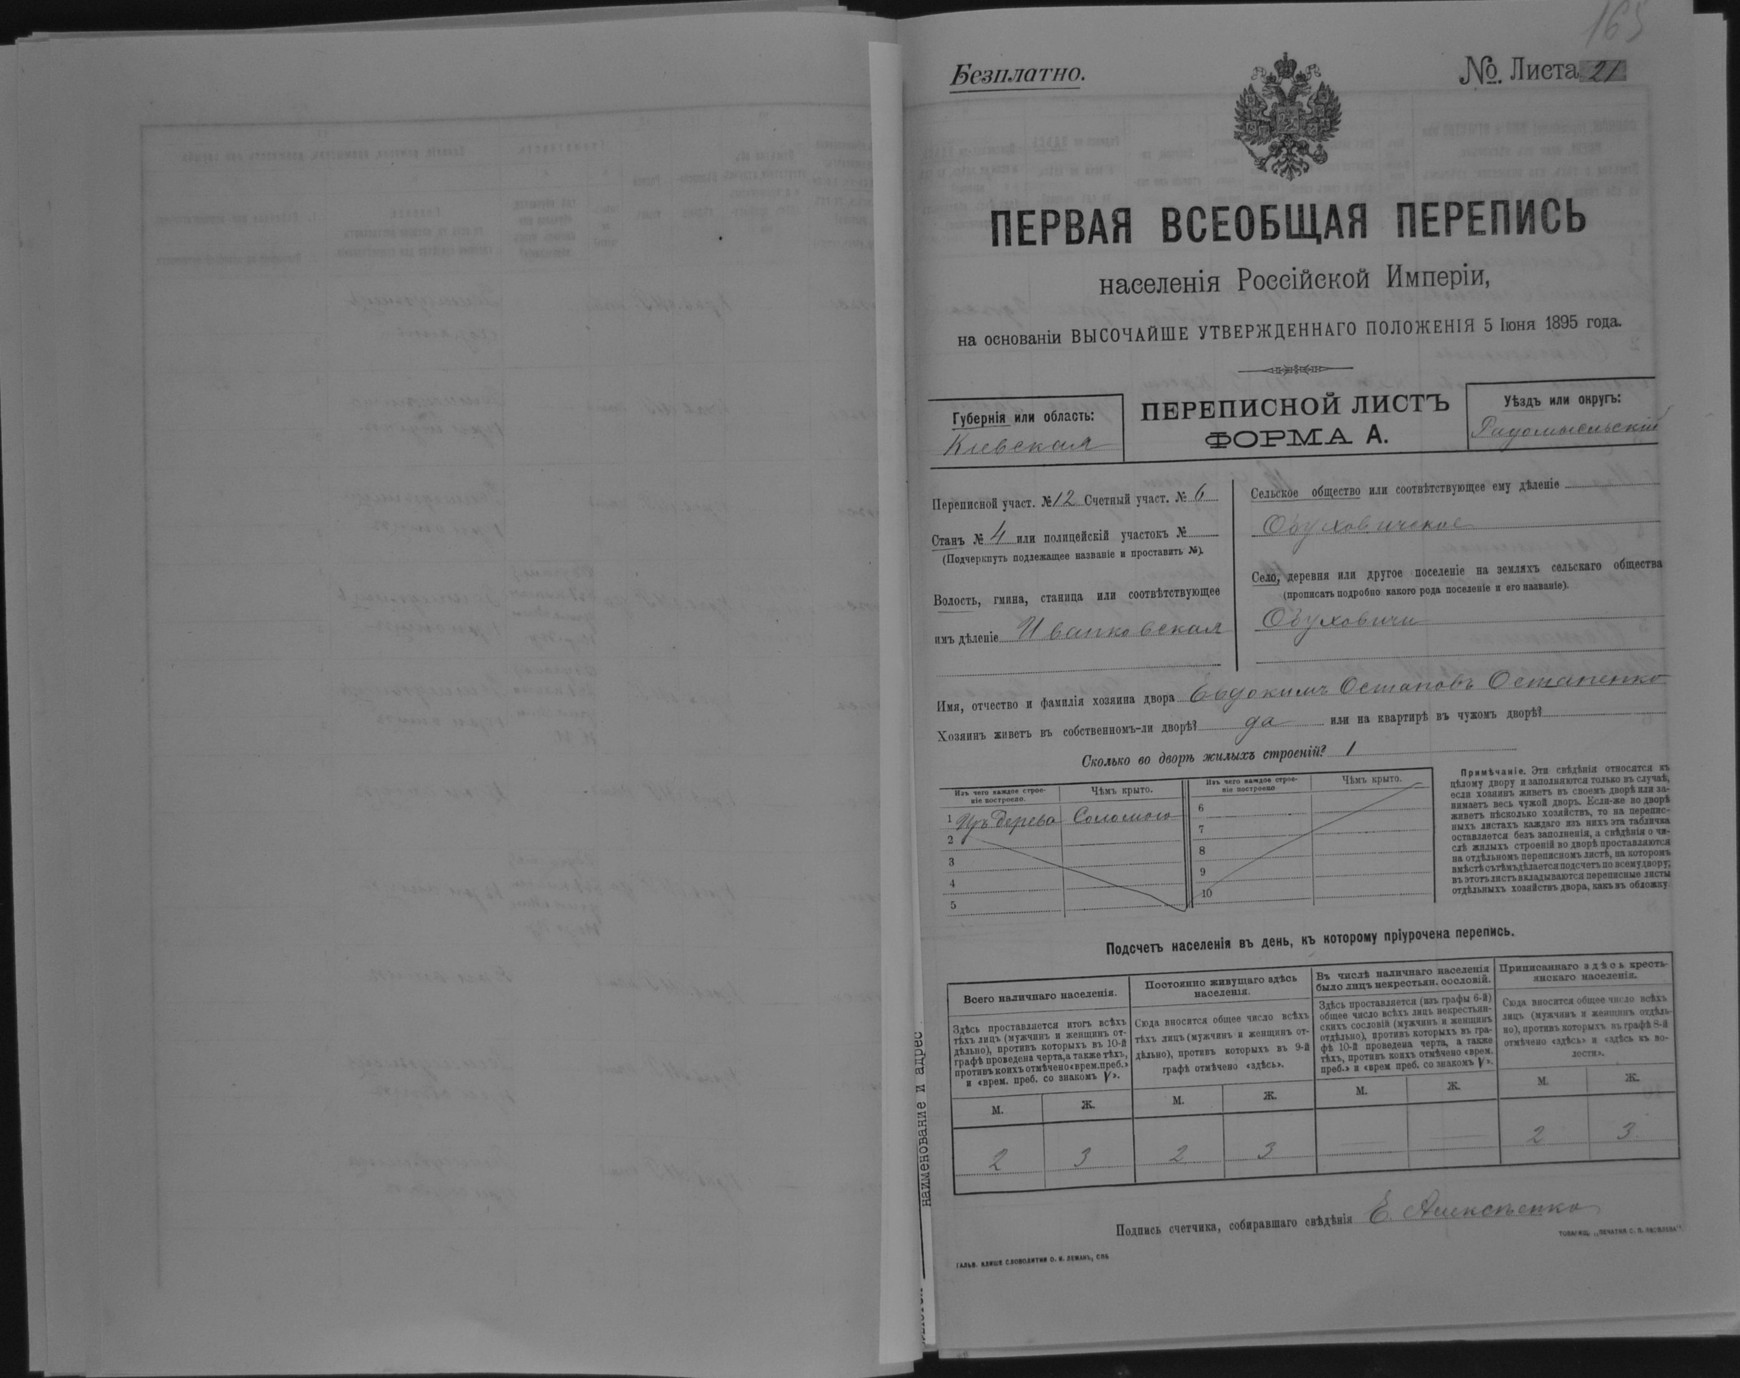 165
Безплатно.
№. Листа 21
ПЕРВАЯ ВСЕОБЩАЯ ПЕРЕПИСЬ
населенія Россійской Имперіи,
на основаніи ВЫСОЧАЙШЕ УТВЕРЖДЕННАГО ПОЛОЖЕНІЯ 5 Іюня 1895 года.
Губернія или область:
Кіевская
ПЕРЕПИСНОЙ ЛИСТЪ
ФОРМА А.
Уѣздъ или округъ:
Радомысльскій
Переписной участ. № 12 Счетный участ. № 6
Станъ № 4 или полицейскій участокъ №
(Подчеркнуть подлежащее названіе и проставить №).
Волость, гмина, станица или соотвѣтствующее
имъ дѣленіе Иванковская
Сельское общество или соотвѣтствующее ему дѣленіе
Обуховичское
Село, деревня или другое поселеніе на земляхъ сельскаго общества
(прописать подробно какого рода поселеніе и его названіе).
Обуховичи
Имя, отчество и фамилія хозяина двора Евдокимъ Остаповъ Остапенко
Хозяинъ живетъ въ собственномъ-ли дворѣ? да или на квартирѣ въ чужомъ дворѣ?
Сколько во дворѣ жилыхъ строеній? 1
Изъ чего каждое строе-
ніе построено.
Чѣмъ крыто.
Изъ чего каждое строе-
ніе построено
Чѣмъ крыто.
1 Изъ дерева Соломою
2
3
4
5
6
7
8
9
10
Примѣчаніе. Эти свѣдѣнія относятся къ
цѣлому двору и заполняются только въ случаѣ,
если хозяинъ живетъ въ своемъ дворѣ или за-
нимаетъ весь чужой дворъ. Если-же во дворѣ
живетъ нѣсколько хозяйствъ, то на перепис-
ныхъ листахъ каждаго изъ нихъ эта табличка
оставляется безъ заполненія, а свѣдѣнія о чи-
слѣ жилыхъ строеній во дворѣ проставляются
на отдѣльномъ переписномъ листѣ, на которомъ
вмѣстѣ съ тѣмъ дѣлается подсчетъ по всему двору;
въ этотъ листъ вкладываются переписные листы
отдѣльныхъ хозяйствъ двора, какъ въ обложку.
Подсчетъ населенія въ день, къ которому пріурочена перепись.
Всего наличнаго населенія.
Здѣсь проставляется итогъ всѣхъ
тѣхъ лицъ (мужчинъ и женщинъ от-
дѣльно), противъ которыхъ въ 10-й
графѣ проведена черта, а также тѣхъ,
противъ коихъ отмѣчено «врем. преб.»
и «врем. преб. со знакомъ V».
Постоянно живущаго здѣсь
населенія.
Сюда вносится общее число всѣхъ
тѣхъ лицъ (мужчинъ и женщинъ от-
дѣльно), противъ которыхъ въ 9-й
графѣ отмѣчено «здѣсь».
Въ числѣ наличнаго населенія
было лицъ некрестьян. сословій.
Здѣсь проставляется (изъ графы 6-й)
общее число всѣхъ лицъ некрестьян-
скихъ сословій (мужчинъ и женщинъ
отдѣльно), противъ которыхъ въ гра-
фѣ 10-й проведена черта, а также
тѣхъ, противъ коихъ отмѣчено «врем.
преб.» и «врем преб. со знакомъ V».
Приписаннаго здѣсь кресть-
янскаго населенія.
Сюда вносится общее число всѣхъ
лицъ (мужчинъ и женщинъ отдѣль-
но), противъ которыхъ въ графѣ 8-й
отмѣчено «здѣсь» и «здѣсь въ во-
лости».
М. Ж. М. Ж. М. Ж. М. Ж.
2 3 2 3 2 3
Подпись счетчика, собиравшаго свѣдѣнія Е. Алексѣенко
ГАЛЬВ. КЛИШЕ СЛОВОЛИТНИ О. И. ЛЕМАНЪ, СПБ
ТОВАРИЩ. „ПЕЧАТНЯ С. П. ЯКОВЛЕВА"
наименование и адрес